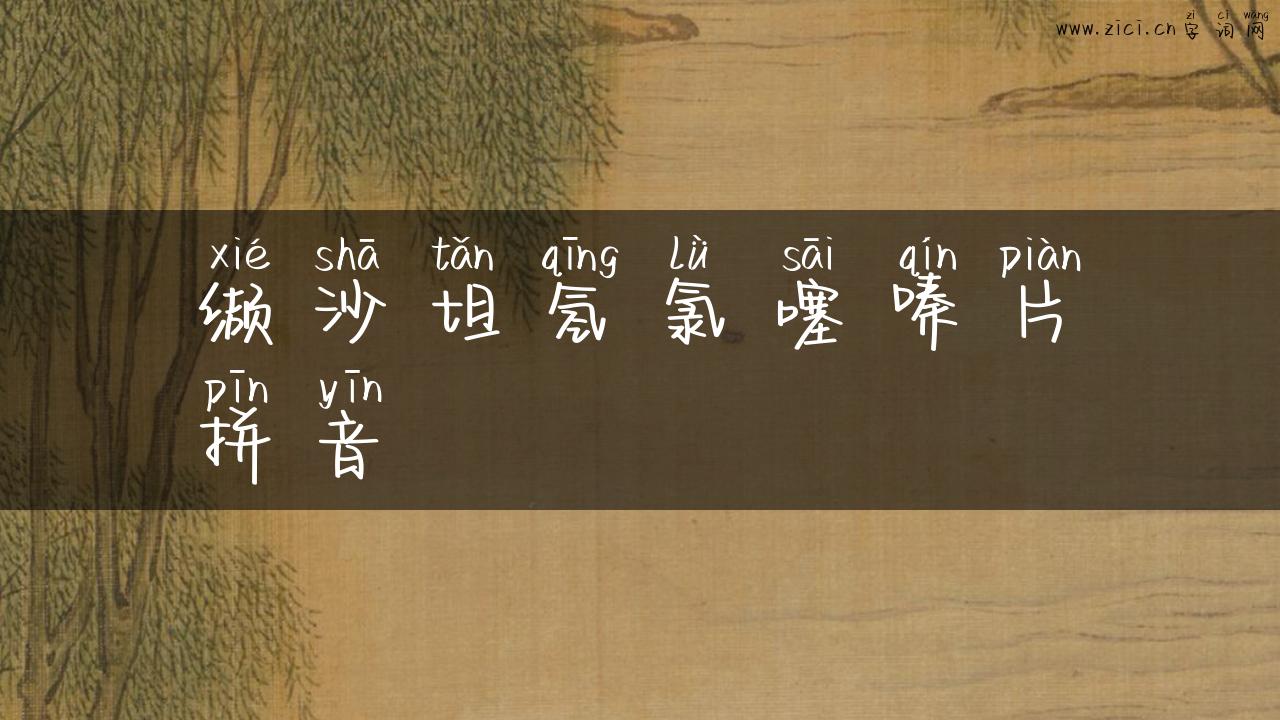 zì cí wǎng
www.zici.cn 字 词 网
xié shā tǎn qīng lǜ sāi qín piàn
缬 沙 坦 氢 氯 噻 嗪 片
pīn yīn
拼 音